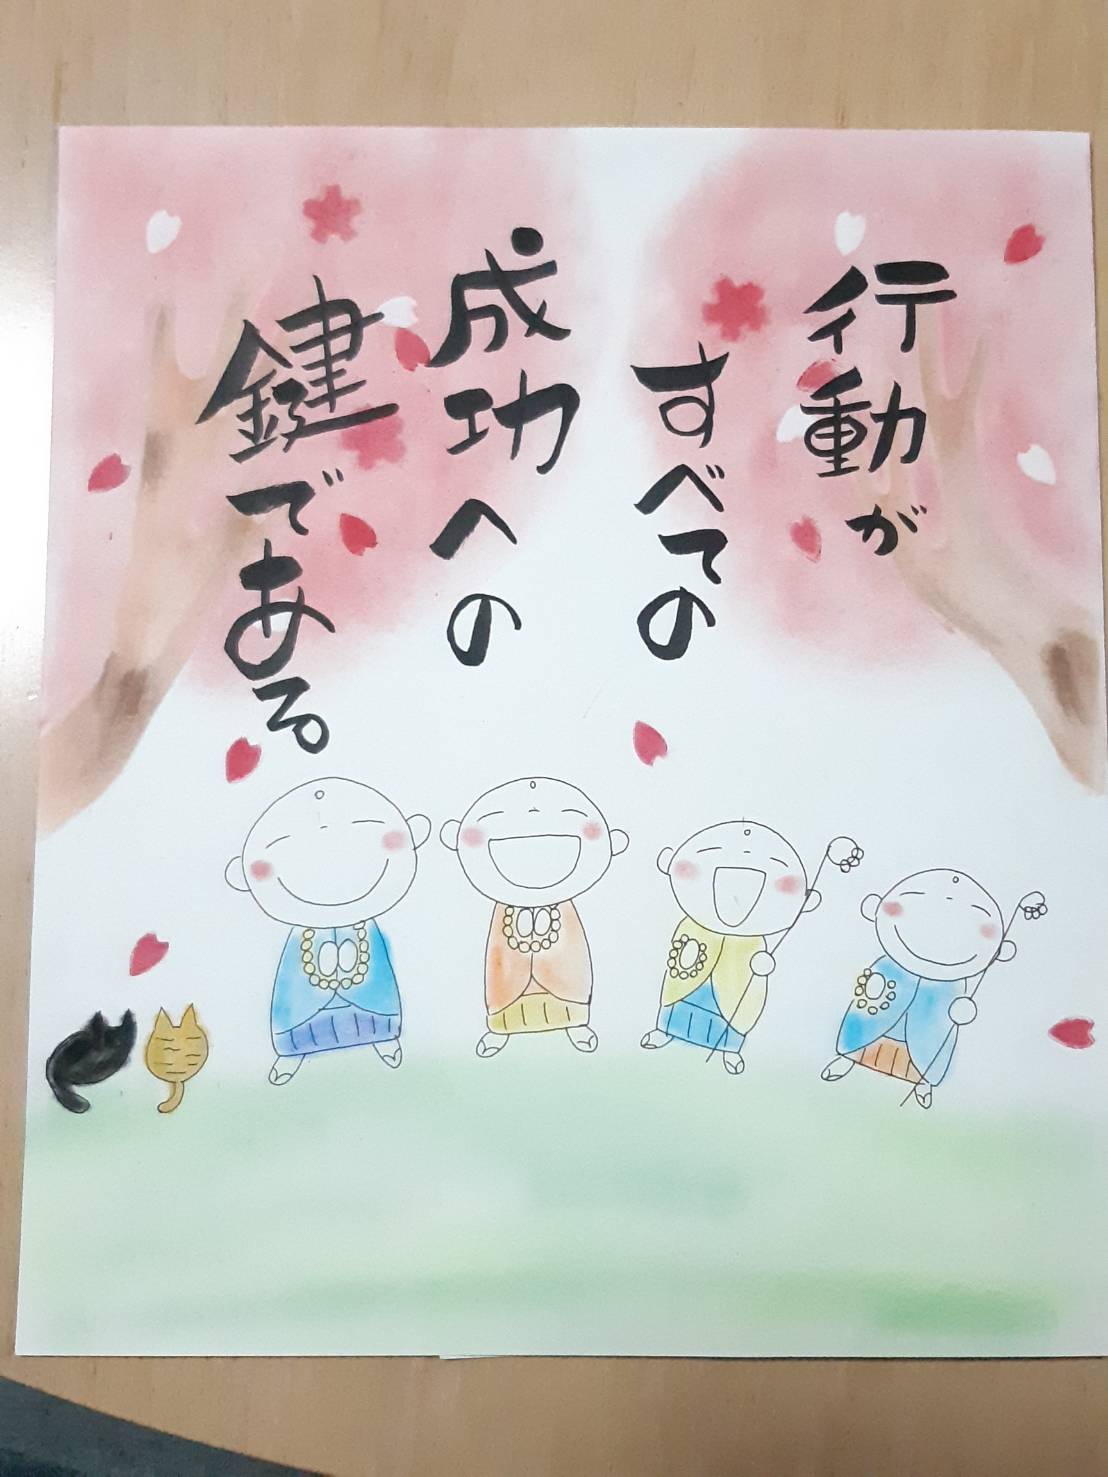 行動が
すべての
成功への
鍵である